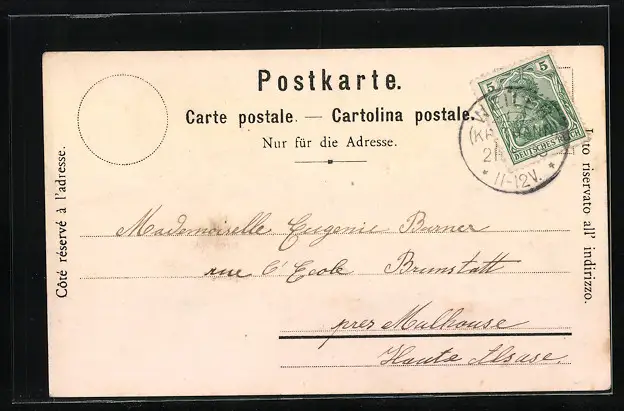 Postkarte.
Carte postale. — Cartolina postale.
Nur für die Adresse.
Côté réservé à l'adresse.
Lato riservato all' indirizzo.
5 5
DEUTSCHES REICH
WEILER
11-12V.
Mademoiselle Eugenie Burner
rue l'Ecole Brunstatt
pres Mulhouse
Haute Alsace.